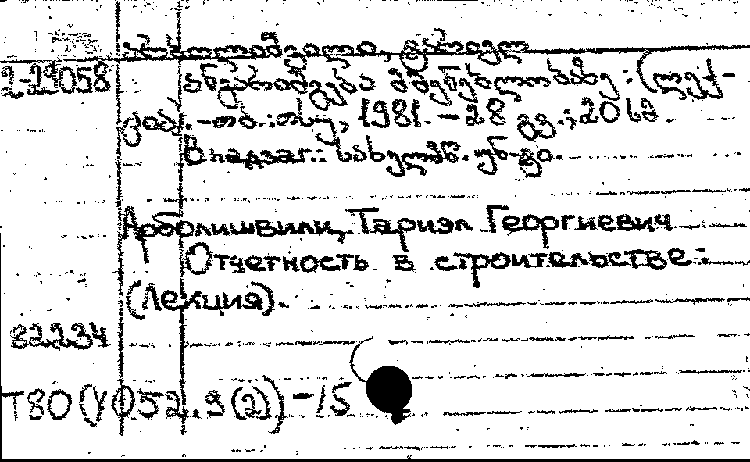 არბოლიშვილი, ტარიელ
2-29058 ანგარიშგება მშენებლობაზე: (ლექ-
ცია). -თბ.:თსუ, 1981. - 28 გვ.; 20 სმ.
В надзаг.: სახელმწ. უნ-ტი.
Арболишвили, Тариэл Георгиевич
Отчетность в строительстве:
(Лекция).
82.234
Т80(У)052.9(2))-15